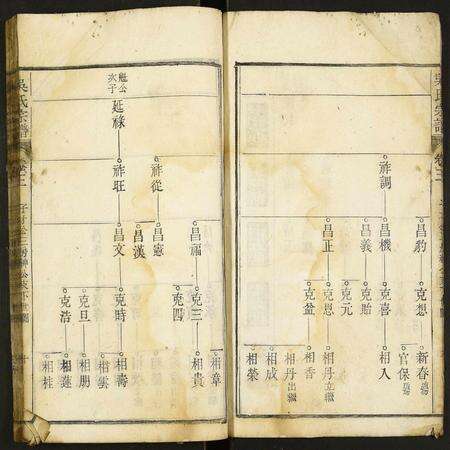 吳氏宗譜
卷三
昌豹
克想
新春
官保
祚調
昌機
克喜
相入
昌義
克貽
克元
昌正
克恩
相丹立繼
相香
克益
相丹出繼
相成
相榮
祚從
昌福
克三
相章
相貴
克四
昌憲
昌漢
魁公次子
延祿
祚旺
昌文
克時
相壽
相雲
克旦
相朋
克浩
相蓮
相桂
吳氏宗譜
卷三